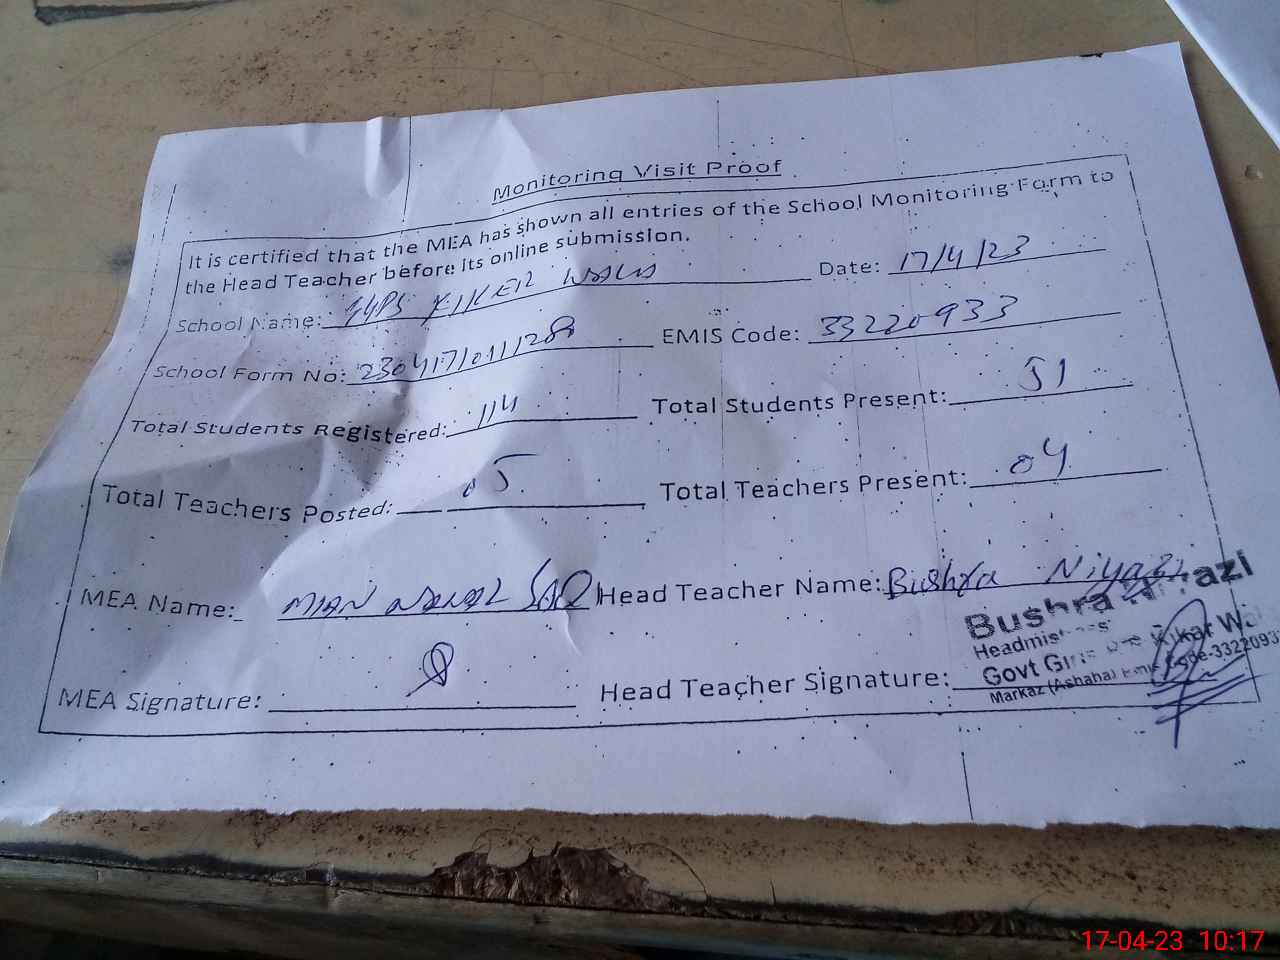 Monitoring Visit Proof
It is certified that the MEA has shown all entries of the School Monitoring Form to
the Head Teacher before its online submission.
School Name: GGPS KIKER WALA Date: 17/4/23
School Form No: EMIS Code: 33220933
Total Students Registered: 114 Total Students Present: 51
Total Teachers Posted: 05 Total Teachers Present: 04
MEA Name: MIAN Head Teacher Name: Bushra Niyazi
Bushra Niyazi
Headmistress
Govt Kikar
MEA Signature: Head Teacher Signature:
Markaz (Ashaba) Code-3322093
17-04-23 10:17